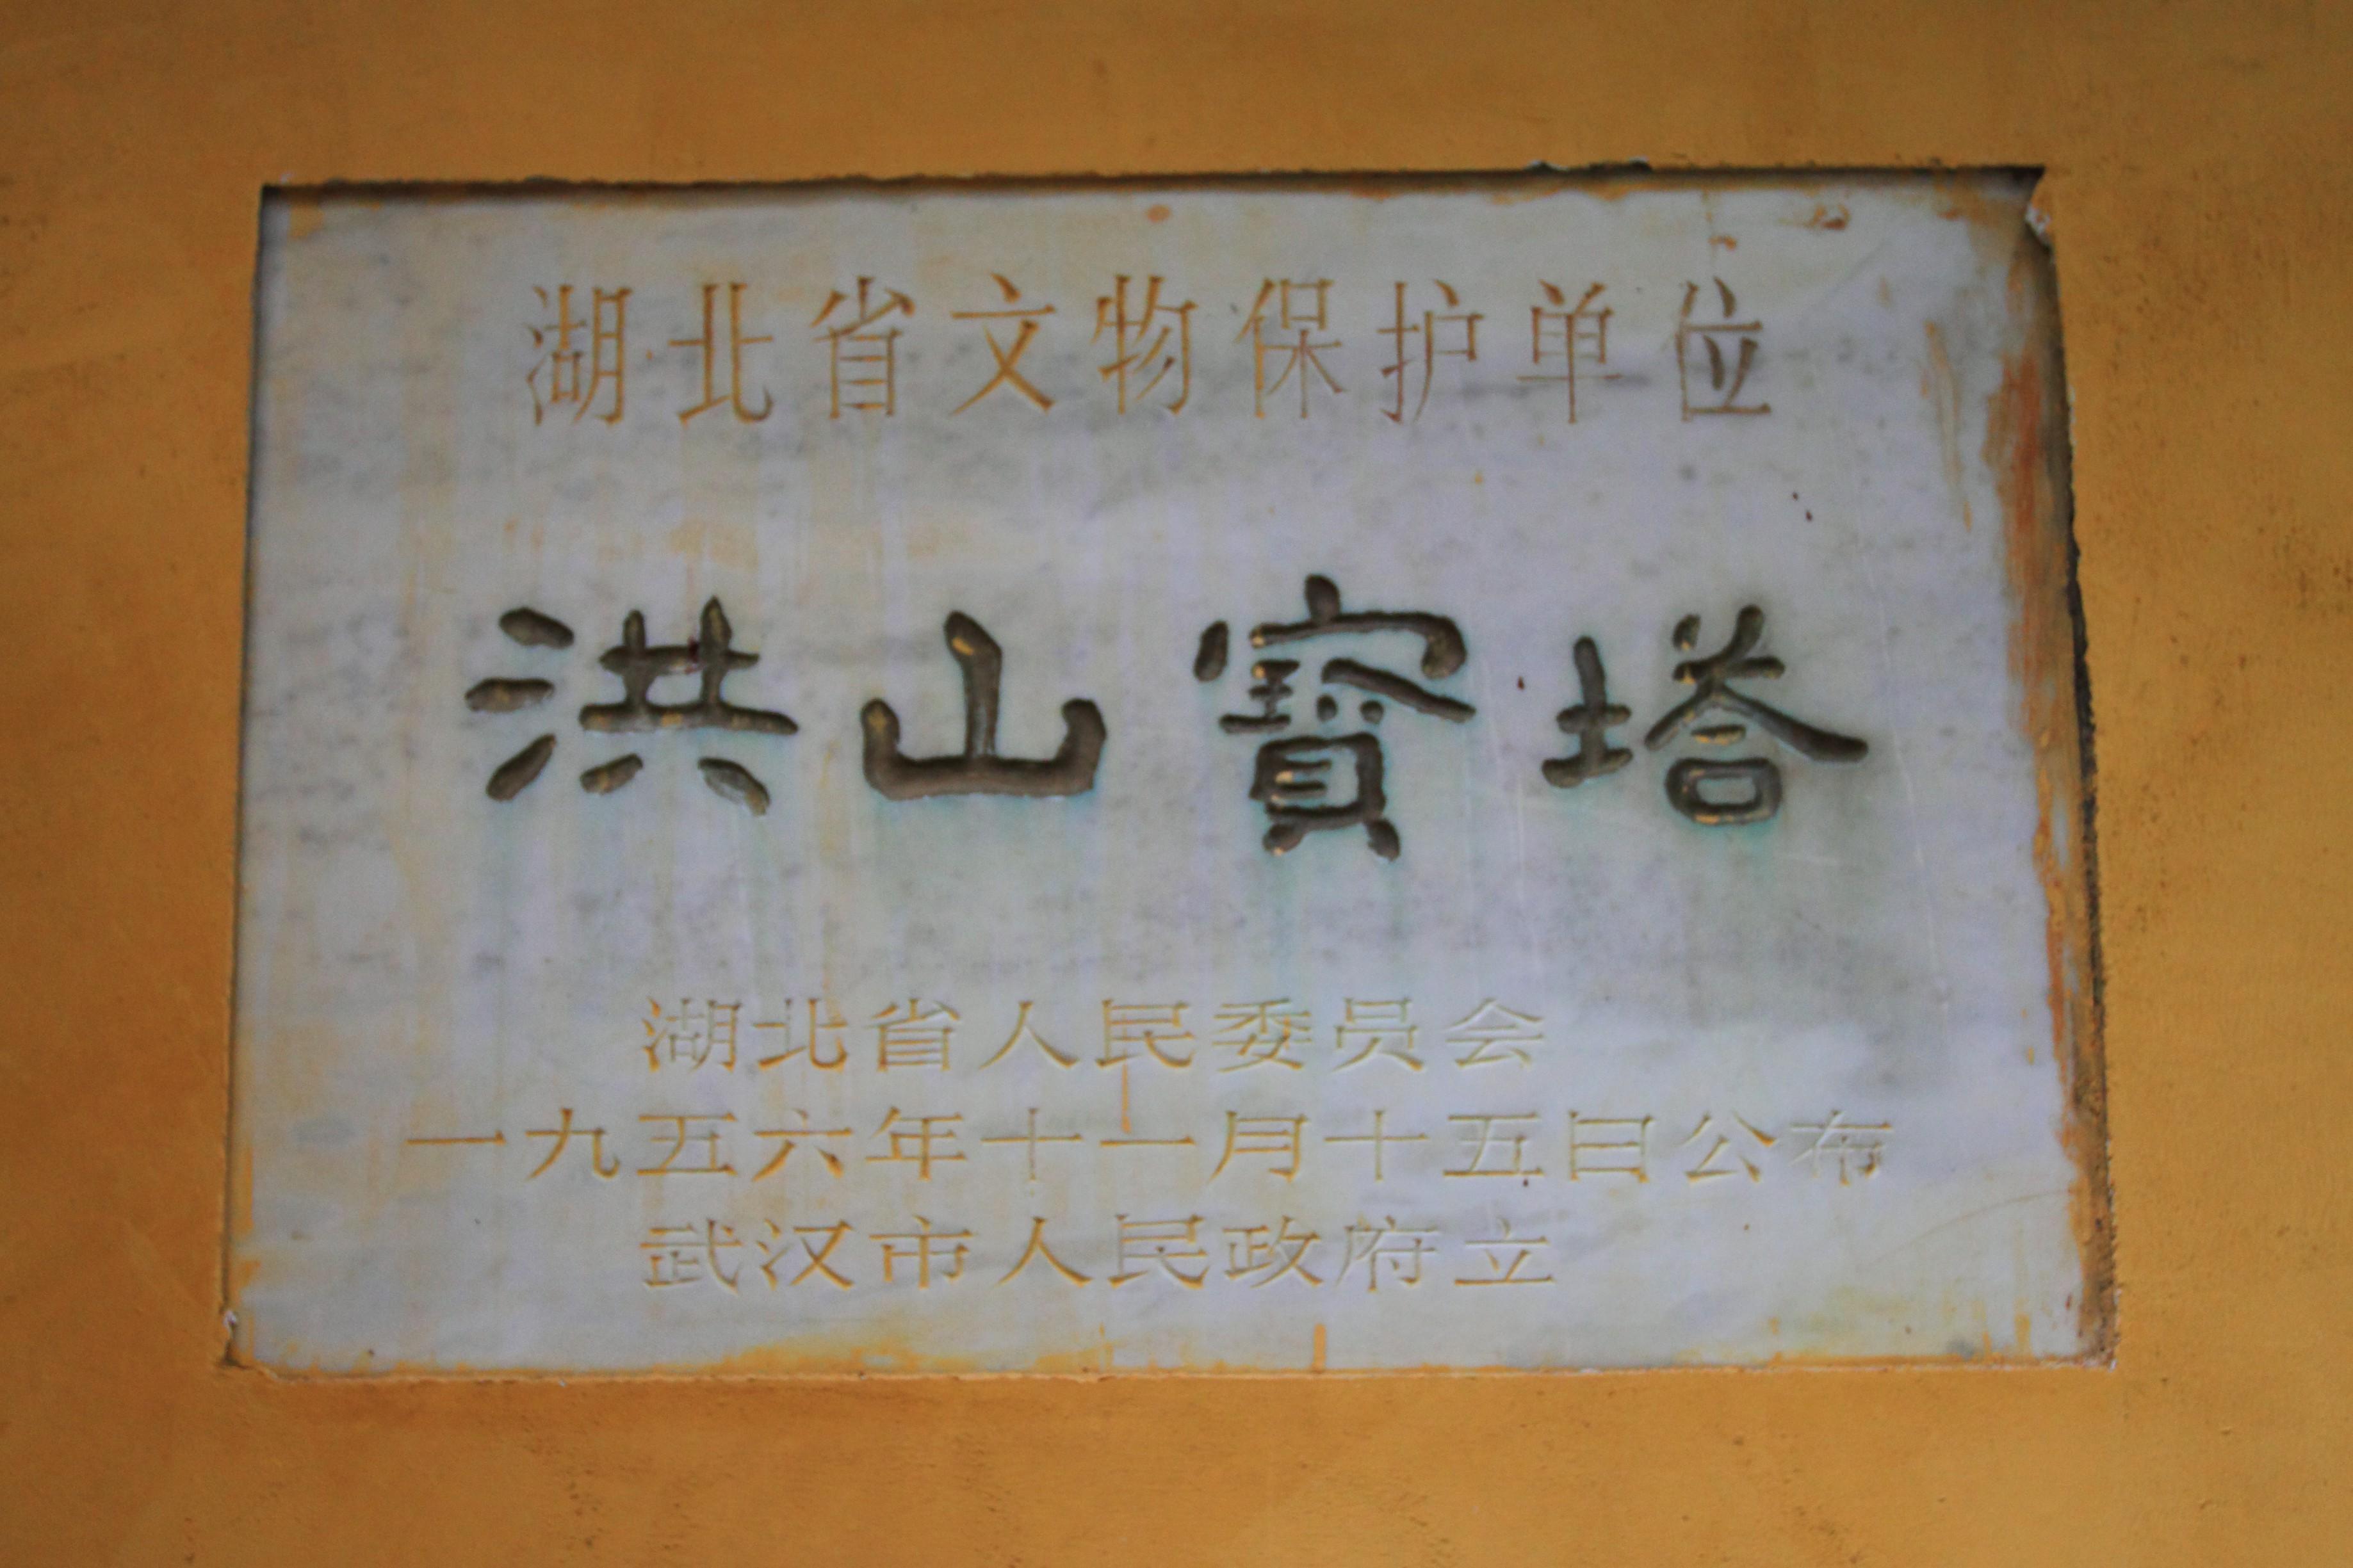 湖北省文物保护单位
洪山寳塔
湖北省人民委员会
一九五六年十一月十五日公布
武汉市人民政府立